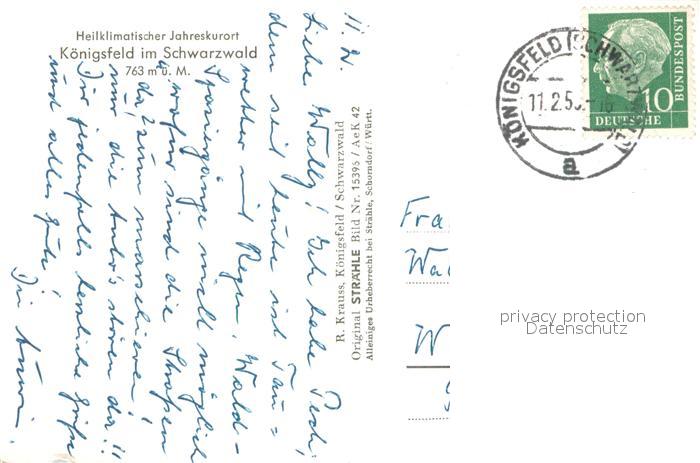 Heilklimatischer Jahreskurort
Königsfeld im Schwarzwald
763 m ü. M.
11. II.
Liebe Wally! Ich habe Pech,
denn seit heute ist Tau=
wetter mit Regen. Wald-
spaziergänge nicht möglich
u. wofür sind die Straßen
da? zum marschieren!
nur die Auto's stören da!!
Dir jedenfalls herzliche Grüße
und alles Gute!
Die
R. Krauss, Königsfeld/Schwarzwald
Original STRÄHLE Bild Nr. 15395 / AeK 42
Alleiniges Urheberrecht bei Strähle, Schorndorf/Württ.
KÖNIGSFELD (SCHWARZW
11.2.5
a
10
DEUTSCHE
BUNDESPOST
Fra
Wa
W
privacy protection
Datenschutz